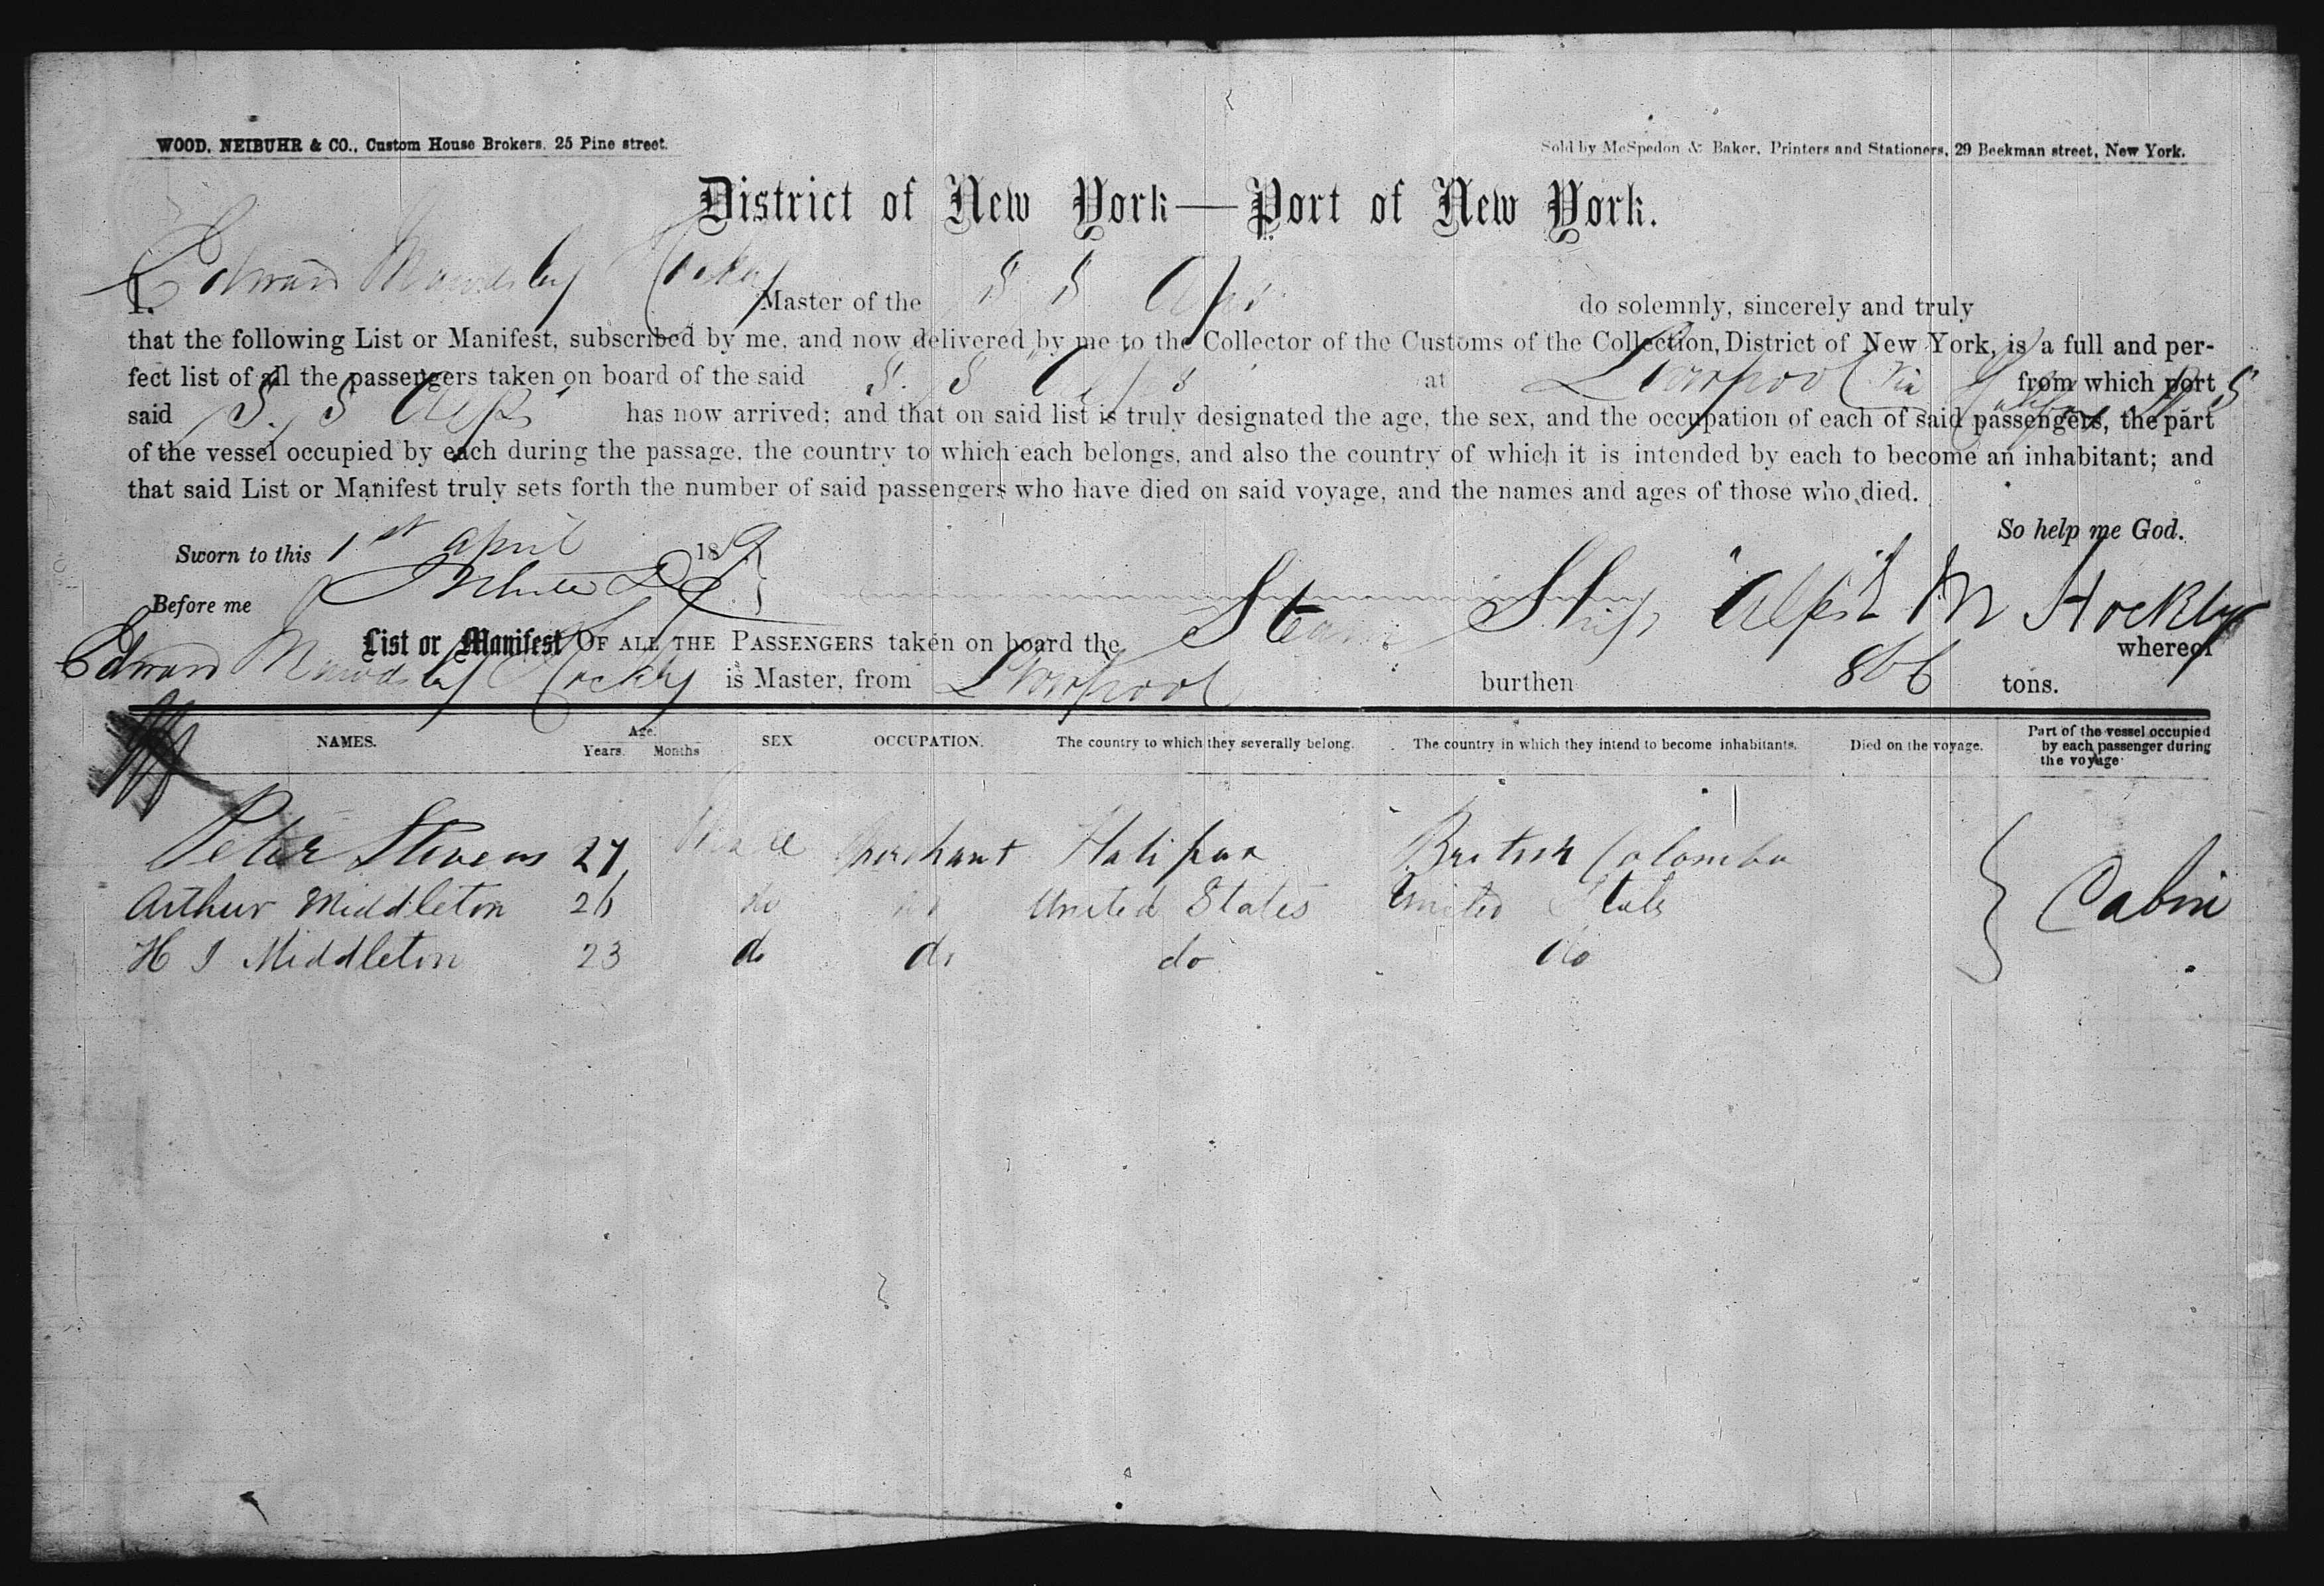 WOOD, NEIBUHR & CO., Custom House Brokers, 25 Pine street.
Sold by McSpedon & Baker, Printers and Stationers, 29 Beekman street, New York.
District of New York—Port of New York.
I, Edward Mawdsley Hockly Master of the S S Alps do solemnly, sincerely and truly
that the following List or Manifest, subscribed by me, and now delivered by me to the Collector of the Customs of the Collection, District of New York, is a full and per-
fect list of all the passengers taken on board of the said S. S Alps at Liverpool via Halifax N S from which port
said S. S Alps has now arrived; and that on said list is truly designated the age, the sex, and the occupation of each of said passengers, the part
of the vessel occupied by each during the passage, the country to which each belongs, and also the country of which it is intended by each to become an inhabitant; and
that said List or Manifest truly sets forth the number of said passengers who have died on said voyage, and the names and ages of those who died.
So help me God.
Sworn to this 1st April 1859
Before me
E M Hockly
List or Manifest OF ALL THE PASSENGERS taken on board the Steam Ship "Alps" whereof
Edward Mawdsley Hockly is Master, from Liverpool burthen 866 tons.
NAMES. Age. Years. Months SEX OCCUPATION. The country to which they severally belong. The country in which they intend to become inhabitants. Died on the voyage. Part of the vessel occupied by each passenger during the voyage
Peter Stevens 27 Male Merchant Halifax British Colomba
Arthur Middleton 26 do do United States United States
H J Middleton 23 do do do do
Cabin